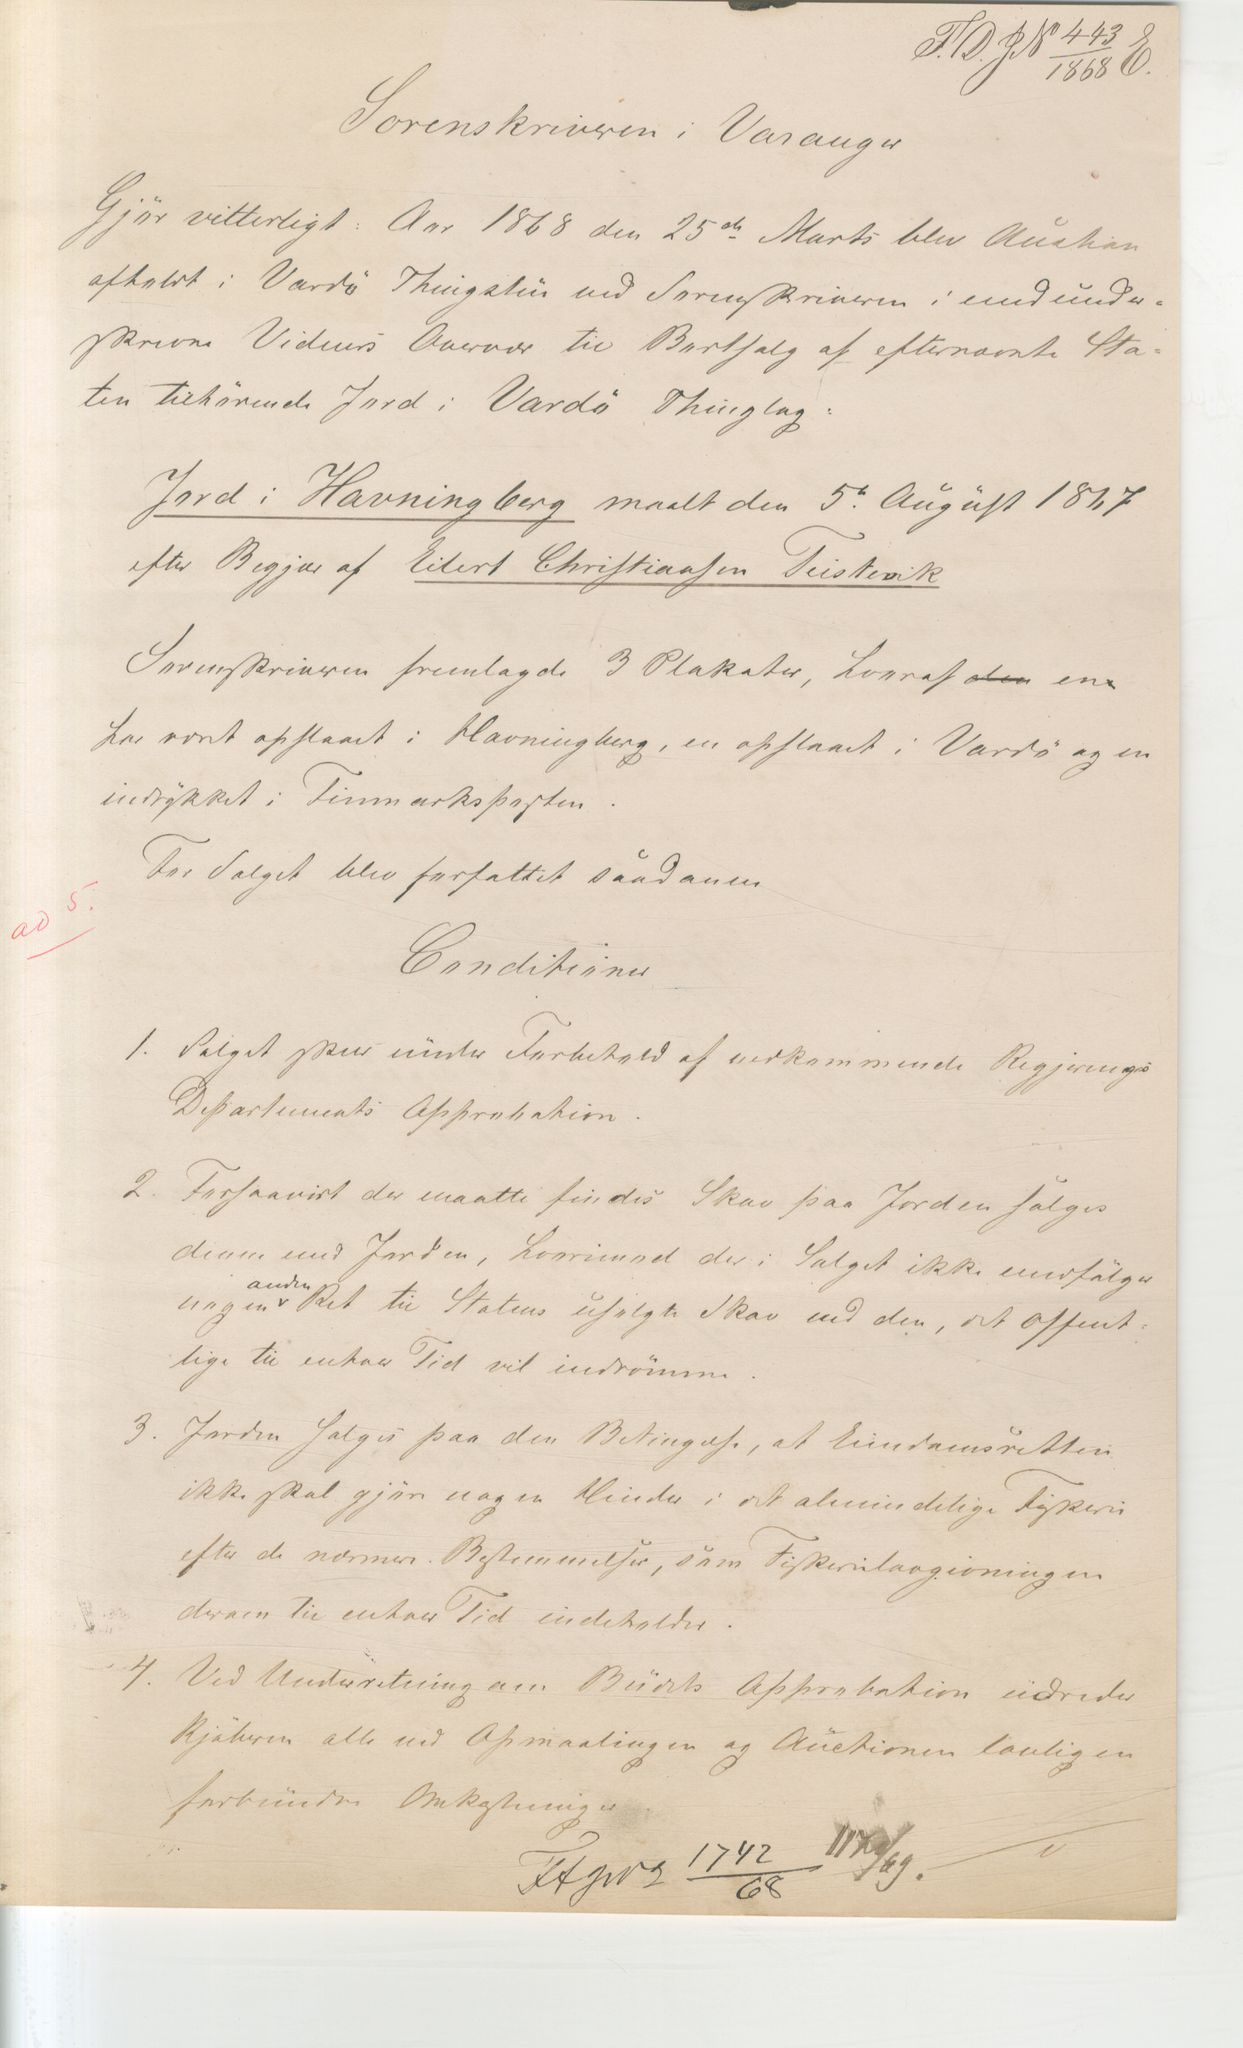 F. D. J N 443/1868 E.
Sorenskriveren i Varanger
Gjör vitterligt: Aar 1868 den 25de Marts blev Auction
afholdt i Vardö Thingstue ved Sorenskriveren i medunder-
skrevne Vidners Overvær til Bortsalg af efternævnte Sta-
ten tilhörende Jord i Vardö Thinglag:
Jord i Havningberg maalt den 5te August 1867
efter Begjær af Eilert Christiansen Teistevik
Sorenskriveren fremlagde 3 Plakater, hvoraf den en
har været opslaaet i Havningberg, en opslaaet i Vardö og en
indrykket i Finmarksposten.
For Salget blev forfattet saadanne
ad 5.
Conditioner
1. Salget skeer under Forbehold af vedkommende Regjerings
Departements Approbation.
2. Forsaavidt der maatte findes Skov paa Jorden sælges
denne med Jorden, hvorimod der i Salget ikke medfölger
anden
nogen Ret til Statens usolgte Skov end den, det offent-
lige til enhver Tid vil indrömme.
3. Jorden sælges paa den Betingelse, at Eiendomsretten
ikke skal gjöre nogen Hinder i det almindelige Fiskeri
efter de nærmere Bestemmelser, som Fiskerilovgivningen
derom til enhver Tid indeholder.
4. Ved Underretning om Budets Approbation udreder
Kjöberen alle ved Opmaalingen og Auctionen lovligen
forbundne Omkostninger.
1742/68 /69.